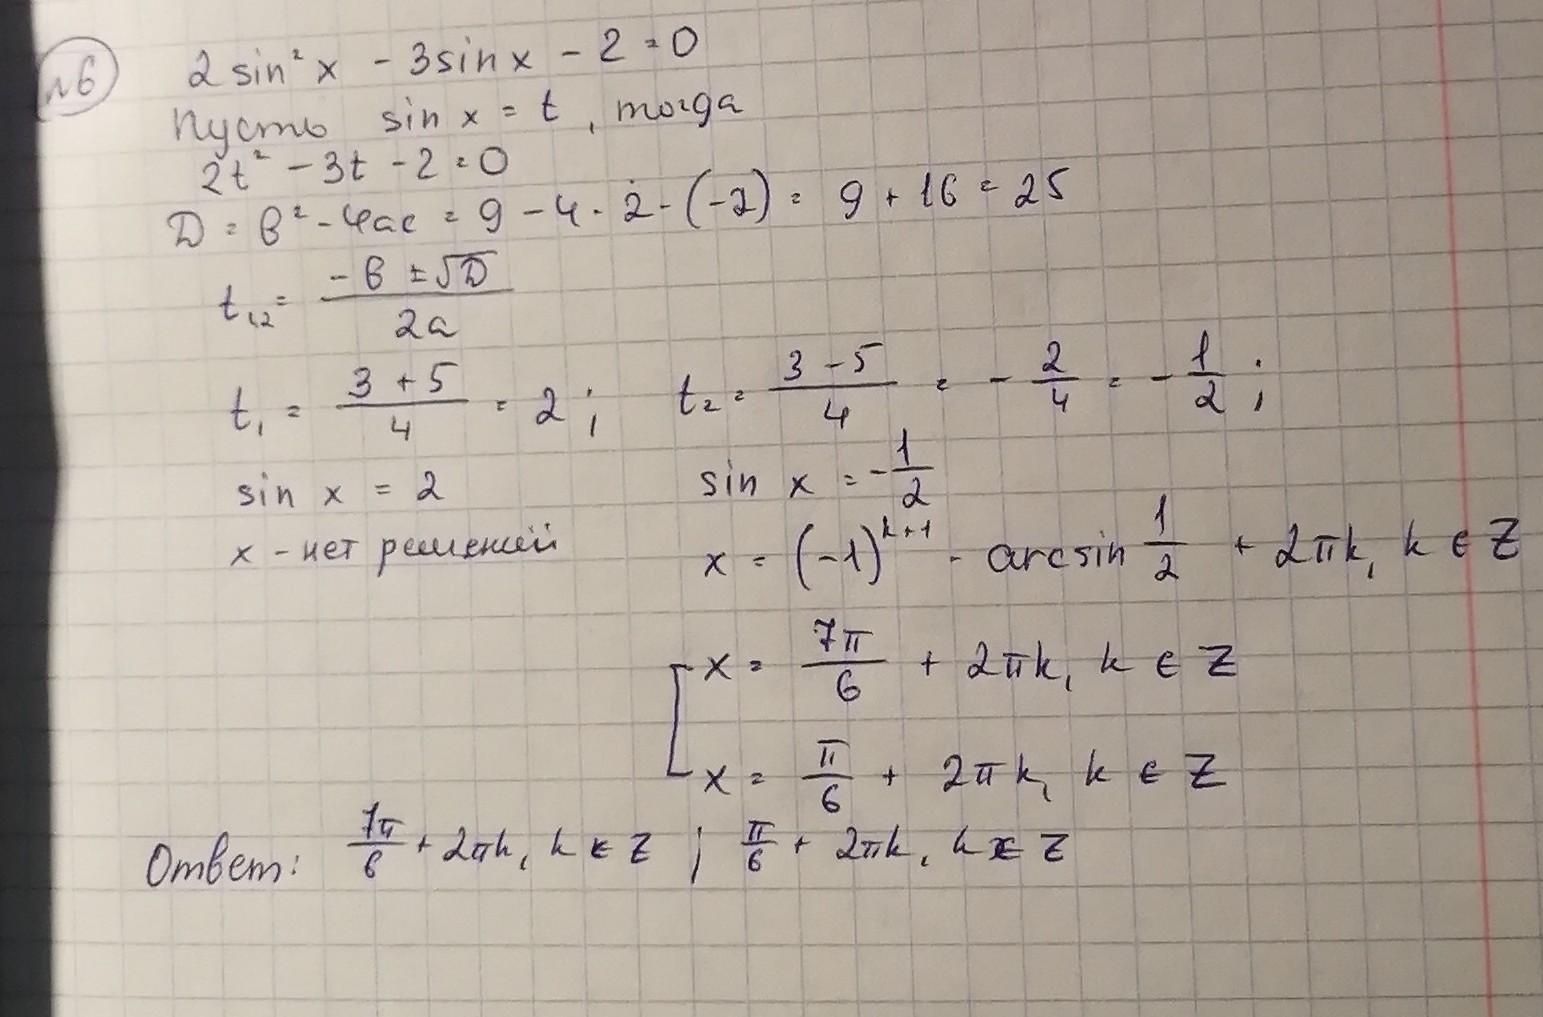 №6
2 sin² x - 3 sin x - 2 = 0
Пусть sin x = t, тогда
2t² - 3t - 2 = 0
D = b² - 4ac = 9 - 4 · 2 · (-2) = 9 + 16 = 25
t₁,₂ = (-b ± √D) / 2a
t₁ = (3 + 5) / 4 = 2; t₂ = (3 - 5) / 4 = - 2/4 = - 1/2;
sin x = 2 sin x = - 1/2
x - нет решений x = (-1)^(k+1) · arcsin 1/2 + 2πk, k ∈ Z
[ x = 7π/6 + 2πk, k ∈ Z
x = π/6 + 2πk, k ∈ Z
Ответ: 7π/6 + 2πk, k ∈ Z ; π/6 + 2πk, k ∈ Z